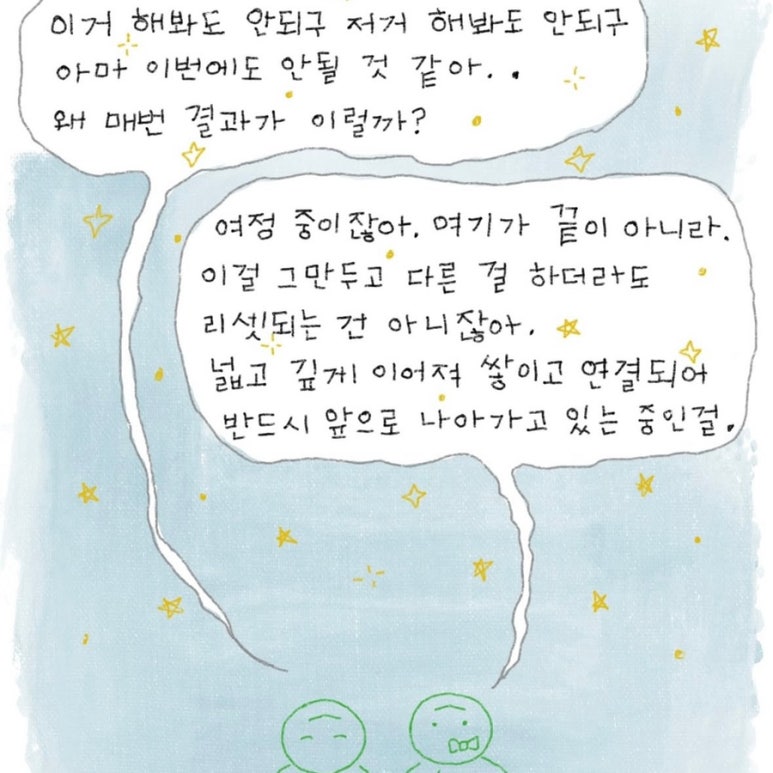 이거 해봐도 안되구 저거 해봐도 안되구
아마 이번에도 안될 것 같아..
왜 매번 결과가 이럴까?
여정 중이잖아. 여기가 끝이 아니라.
이걸 그만두고 다른 걸 하더라도
리셋되는 건 아니잖아.
넓고 깊게 이어져 쌓이고 연결되어
반드시 앞으로 나아가고 있는 중인걸.